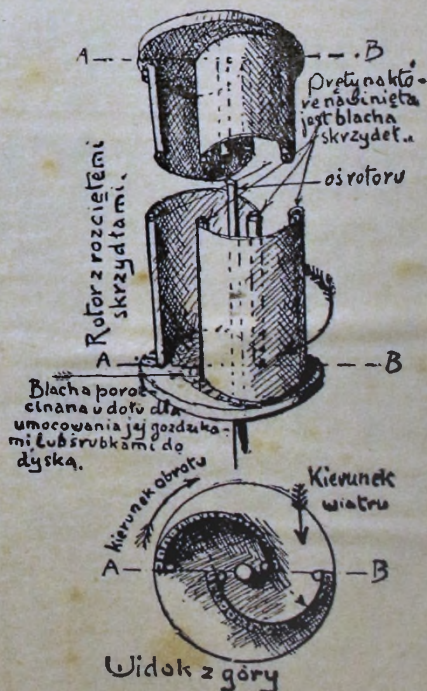 A
B
Pręty na któ-
re nawinięta
jest blacha
skrzydeł..
oś rotoru
Rotor z rozciętemi
skrzydłami.
A
B
Blacha poroz-
cinana u dołu dla
umocowania jej gozdzika-
mi lub śrubkami do
dyska.
kierunek obrotu
Kierunek
wiatru
A
B
Widok z góry